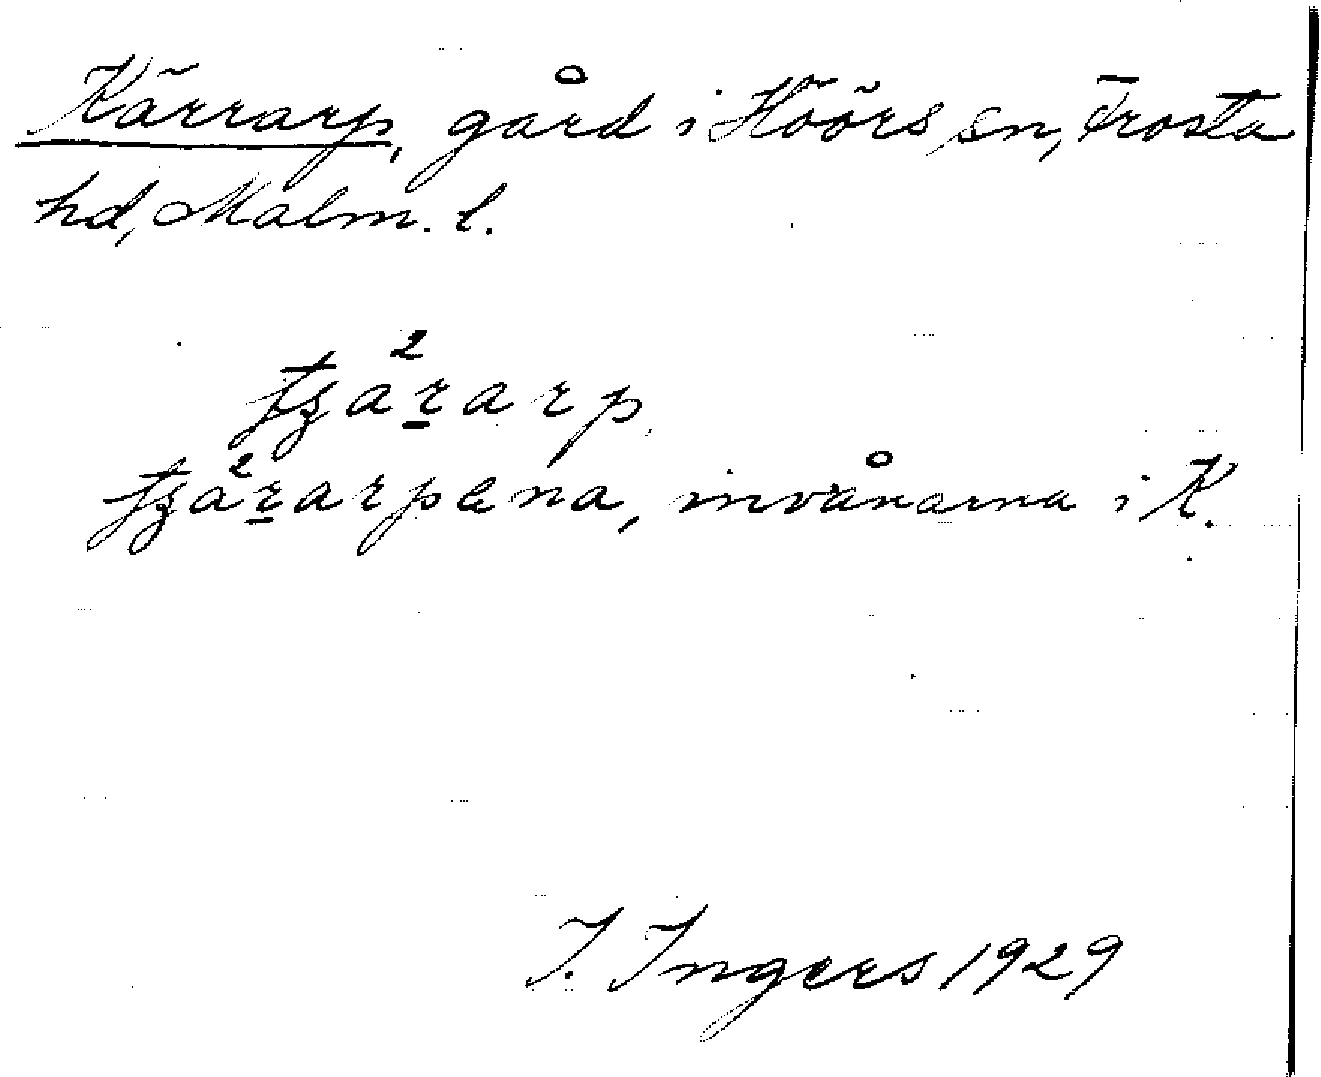 Kärrarp, gård i Höörs sn, Frosta
hd, Malm. l.
tʒa²r̲arp
tʒa²r̲arpana, invånarna i K.
I. Ingers 1929